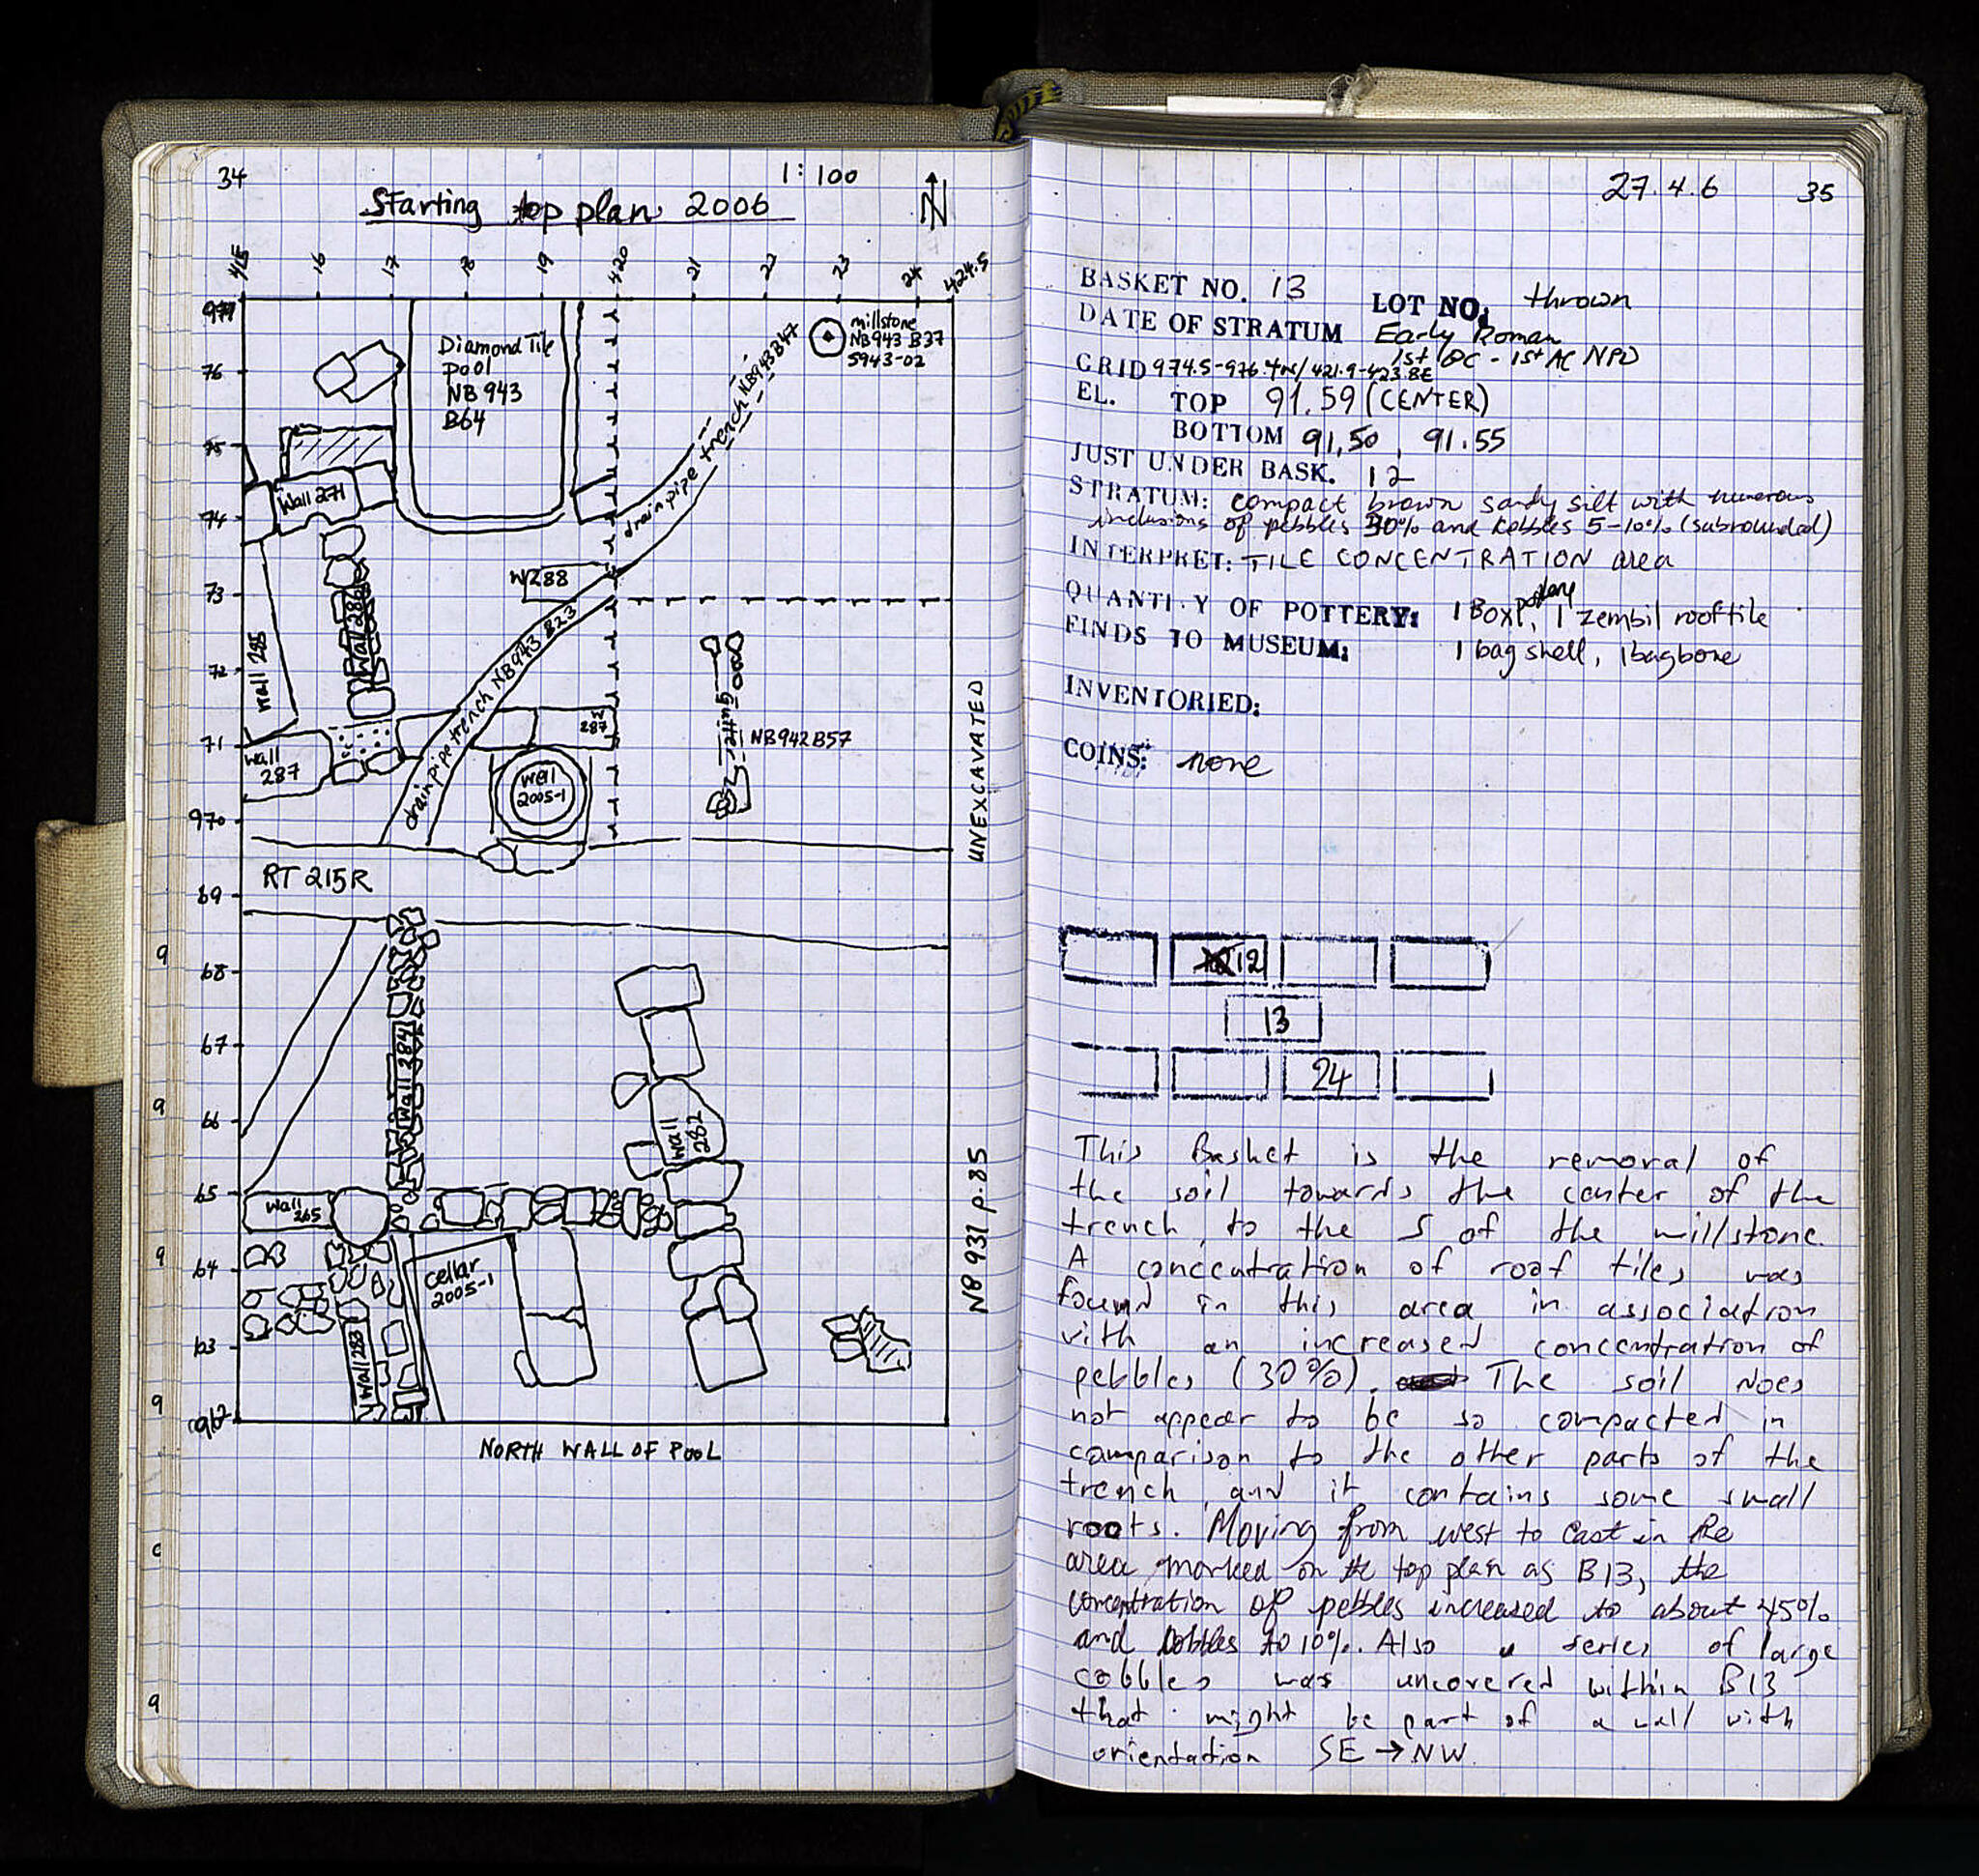 34
1:100
Starting top plan 2006
N
415 16 17 18 19 420 21 22 23 24 424.5
977
76
75
74
73
72
71
970
69
68
67
66
65
64
63
962
Diamond Tile
pool
NB 943
B64
millstone
NB943 B37
S943-02
drainpipe trench NB943B47
Wall 271
W288
Wall 286
Wall 285
drainpipe trench NB943 B23
287
wall
287
well
2005-1
gutter
NB942B57
UNEXCAVATED
RT 215R
Wall 284
wall
282
wall
265
cellar
2005-1
Wall 283
NB 931 p.85
NORTH WALL OF POOL
9
9
9
9
9
27.4.6
35
BASKET NO. 13 LOT NO. thrown
DATE OF STRATUM Early Roman
1st BC - 1st AC NPD
GRID 974.5-976.4NS/421.9-423.8E
EL. TOP 91.59 (CENTER)
BOTTOM 91,50, 91.55
JUST UNDER BASK. 12
STRATUM: compact brown sandy silt with numerous
inclusions of pebbles 30% and kobbles 5-10% (subrounded)
INTERPRET: TILE CONCENTRATION area
QUANTITY OF POTTERY: 1 Box pottery, 1 zembil rooftile
FINDS TO MUSEUM: 1 bag shell, 1 bag bone
INVENTORIED:
COINS: none
12
13
24
This Basket is the removal of
the soil towards the center of the
trench, to the S of the millstone.
A concentration of roof tiles was
found in this area in association
with an increased concentration of
pebbles (30%). The soil does
not appear to be so compacted in
comparison to the other parts of the
trench and it contains some small
roots. Moving from west to East in the
area marked on the top plan as B13, the
concentration of pebbles increased to about 45%
and kobbles to 10%. Also a series of large
cobbles was uncovered within B13
that might be part of a wall with
orientation SE → NW.